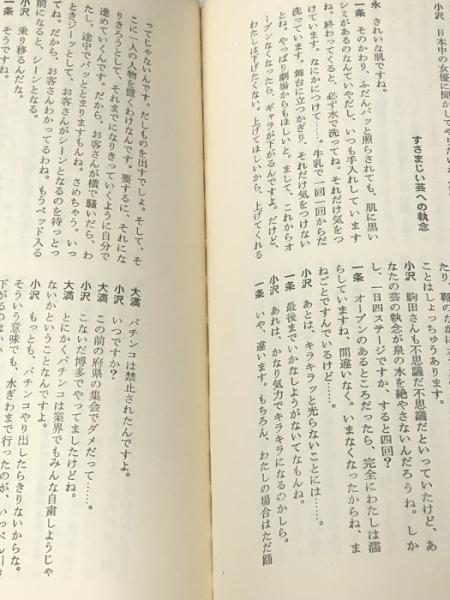 小沢　日本中の女優に聞かしてやりたいな
すさまじい芸への執念
永　きれいな肌ですね。
一条　そのかわり、ふだんパッと照らされても、肌に黒い
シミがあるのなんていやだし、いつも手入れしています
ね。終わってくると、必ず水で洗ってね。それだけ気をつ
けています。なにかにつけて……。牛乳で一回一回からだ
洗っています。舞台に立つかぎり、それだけ気をつけない
とね。やっぱり劇場からもほしいと。まして、これからオ
ープンなくなったら、ギャラが下がるんですよ。だけど、
わたしは下げたくない。上げてほしいから、上げてくれる
たり、鞄のなかに
ことはしょっちゅうあります。
小沢　駒田さんも不思議だ不思議だといっていたけど、あ
なたの芸の執念が泉の水を絶やさないんだろうね。しか
し、一日四ステージですか、すると四回？
一条　オープンのあるところだったら、完全にわたしは濡
らしていますね、間違いなく。いまなくなったからね、ま
ねごとですんでいるけど……。
小沢　あとは、キラキラッと光らないことには……。
一条　最後までいかなしようがないてなもんね。
小沢　あれは、かなり気力でキラキラになるのかしら。
一条　いや、違います。もちろん、わたしの場合はただ踊
ってじゃないんです。だしものを出すでしょ。そして、そ
こに一人の人物を置くわけなんです。要するに、それにな
りきろうとして、それまでになりきっていくように自分で
進めていくんです。だから、お客さんが横で騒いだら、わ
たし、途中でパッととまりますもんね。さめちゃう。いっ
ときジーッとして、お客さんがシーンとなるのを待っとっ
てね。だから、お客さんわかってるわね。もうベッド入る
前になると、シーンとなる。
小沢　乗り移るんだな。
一条　そうですね。
大満　パチンコは禁止されたんですよ。
小沢　いつですか？
大満　この前の府県の集会でダメだって……。
小沢　こないだ博多でやってましたけどね。
大満　とにかくパチンコは業界でもみんな自粛しようじゃ
ないかということなんですよ。
小沢　もっとも、パチンコやり出したらきりないからな。
そういう意味でも、水ぎわまで行ったのが、いっぺん
下がるのは